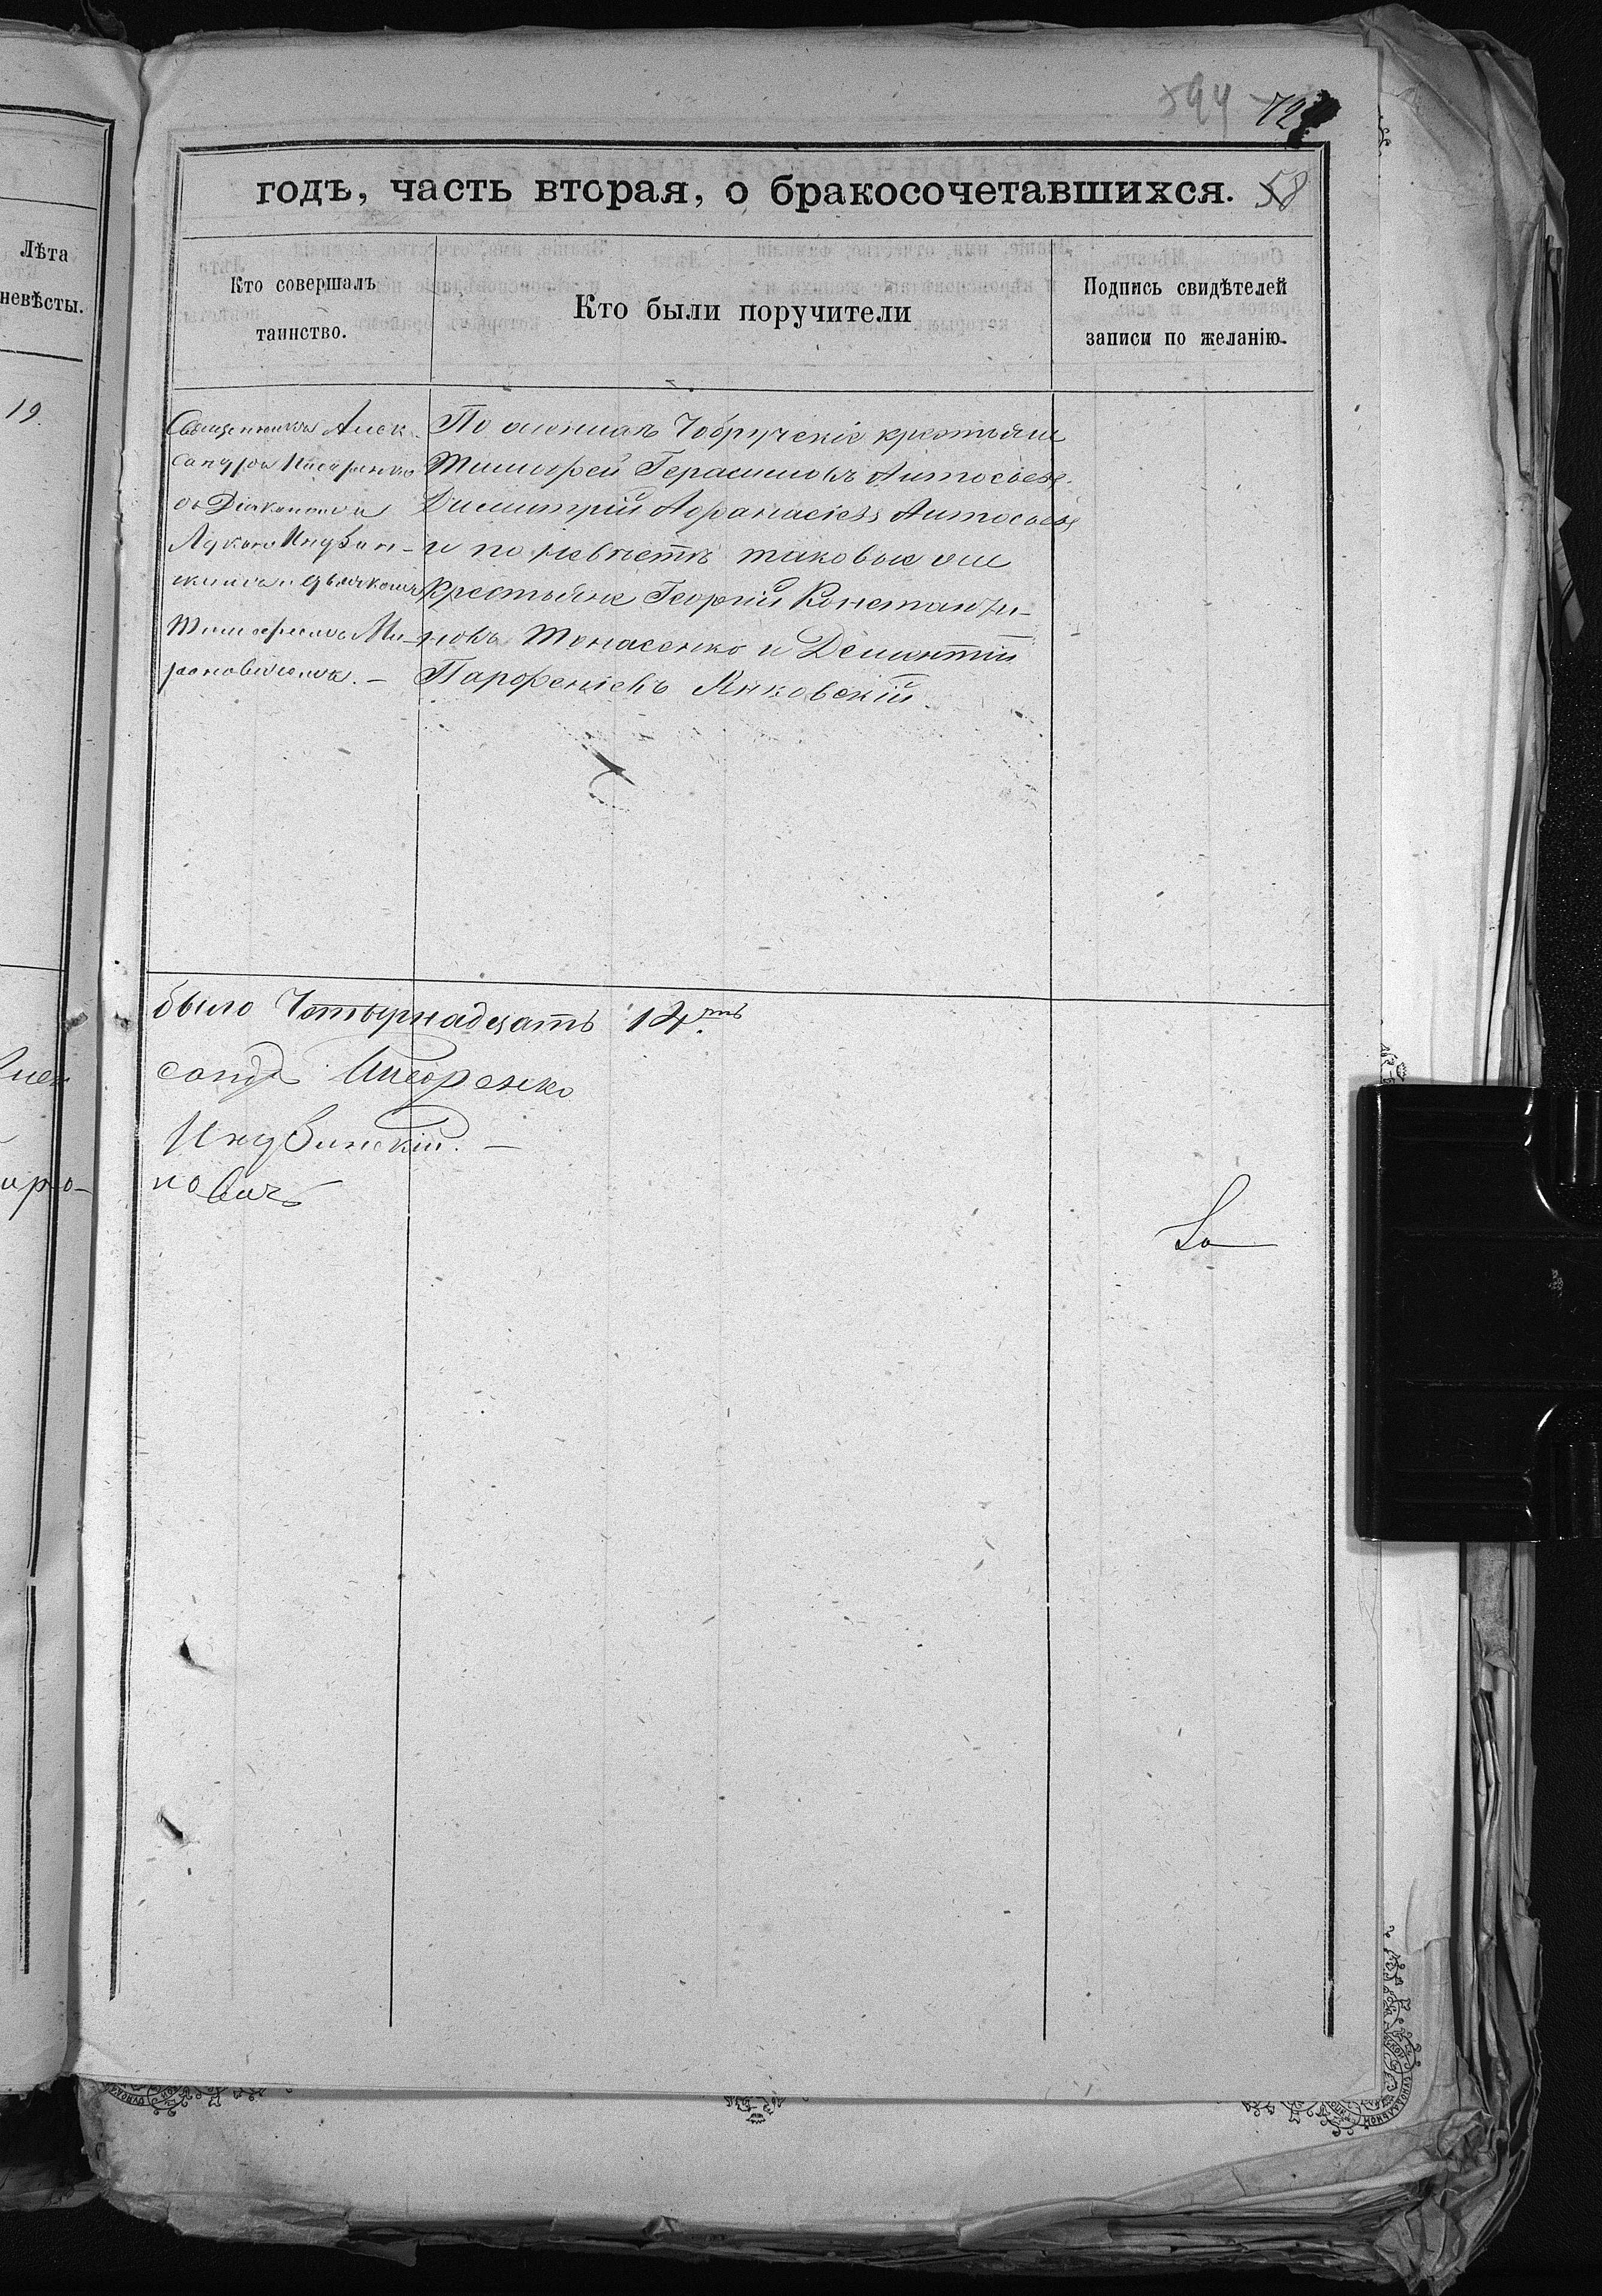 594 72
годъ, часть вторая, о бракосочетавшихся. 58
Лѣта
невѣсты.
Кто совершалъ
таинство.
Кто были поручители
Подпись свидѣтелей
записи по желанію.
19.
Священникъ Алек-
сандръ
съ Діакономъ
Лукою Индзин-
скимъ и дьячкомъ
Тимофеемъ Ми-
роновичемъ. —
По женихѣ Чобручскіе крестьяне
Тимофей Герасимовъ
Димитрій Афанасіевъ
и по невѣстѣ таковые же
Крестьяне Георгій Константи-
новъ Танасенко и Дементій
Парфеніевъ Янковскій.
было Четырнадцать 14.ть
сандръ
Индзинскій. —
иро-
новичъ